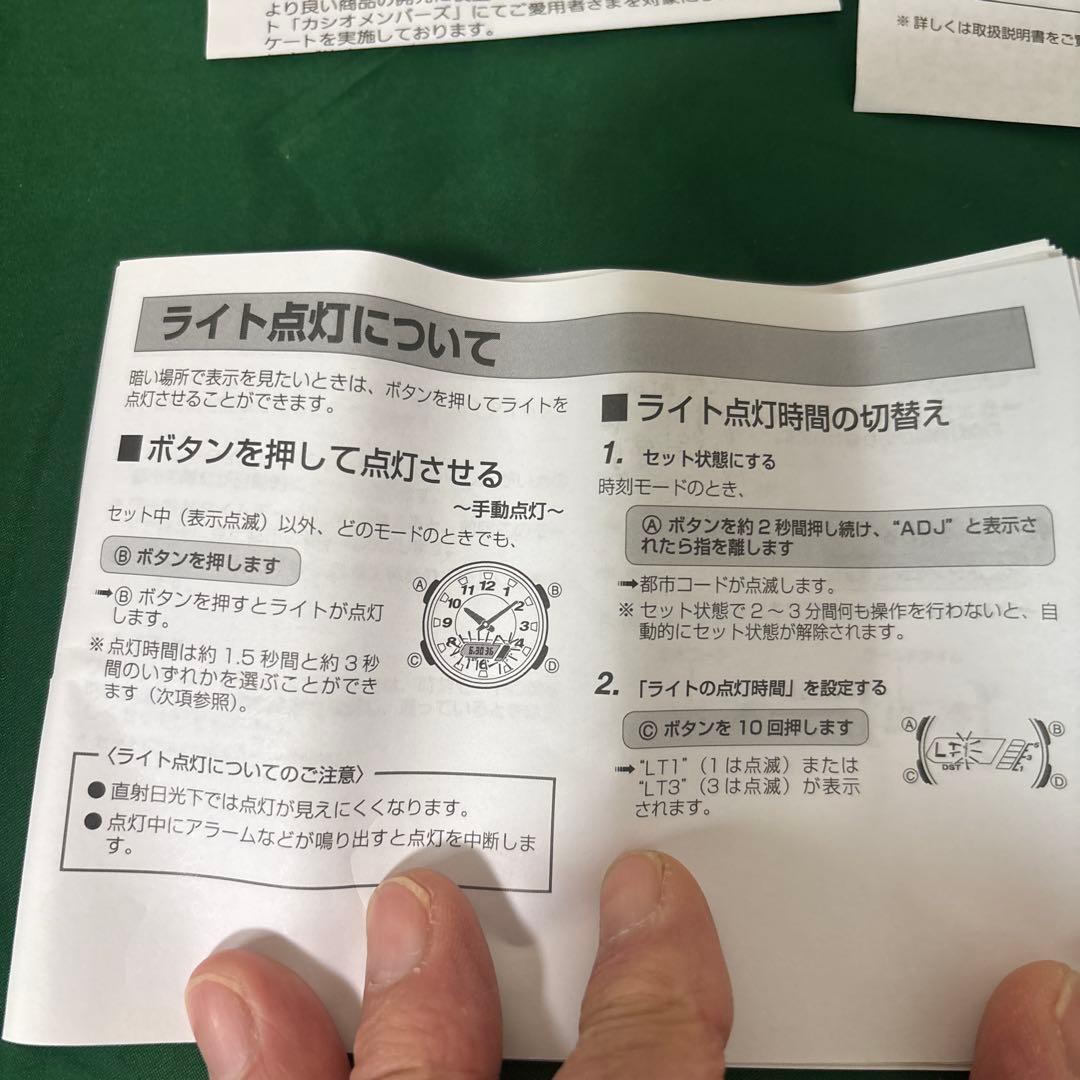 ト「カシオメンバーズ」にてご愛用者さまを対象に
ケートを実施しております。
※詳しくは取扱説明書をご
ライト点灯について
暗い場所で表示を見たいときは、ボタンを押してライトを
点灯させることができます。
■ボタンを押して点灯させる
～手動点灯～
セット中（表示点滅）以外、どのモードのときでも、
Ⓑ ボタンを押します
➡Ⓑ ボタンを押すとライトが点灯
します。
※点灯時間は約1.5秒間と約3秒
間のいずれかを選ぶことができ
ます（次項参照）。
Ⓐ Ⓑ
Ⓒ Ⓓ
〈ライト点灯についてのご注意〉
●直射日光下では点灯が見えにくくなります。
●点灯中にアラームなどが鳴り出すと点灯を中断しま
す。
■ライト点灯時間の切替え
1. セット状態にする
時刻モードのとき、
Ⓐ ボタンを約2秒間押し続け、“ADJ”と表示さ
れたら指を離します
➡都市コードが点滅します。
※セット状態で2～3分間何も操作を行わないと、自
動的にセット状態が解除されます。
2. 「ライトの点灯時間」を設定する
Ⓒ ボタンを10回押します
➡“LT1”（1は点滅）または
“LT3”（3は点滅）が表示
されます。
Ⓐ Ⓑ
LT
DST
Ⓒ Ⓓ